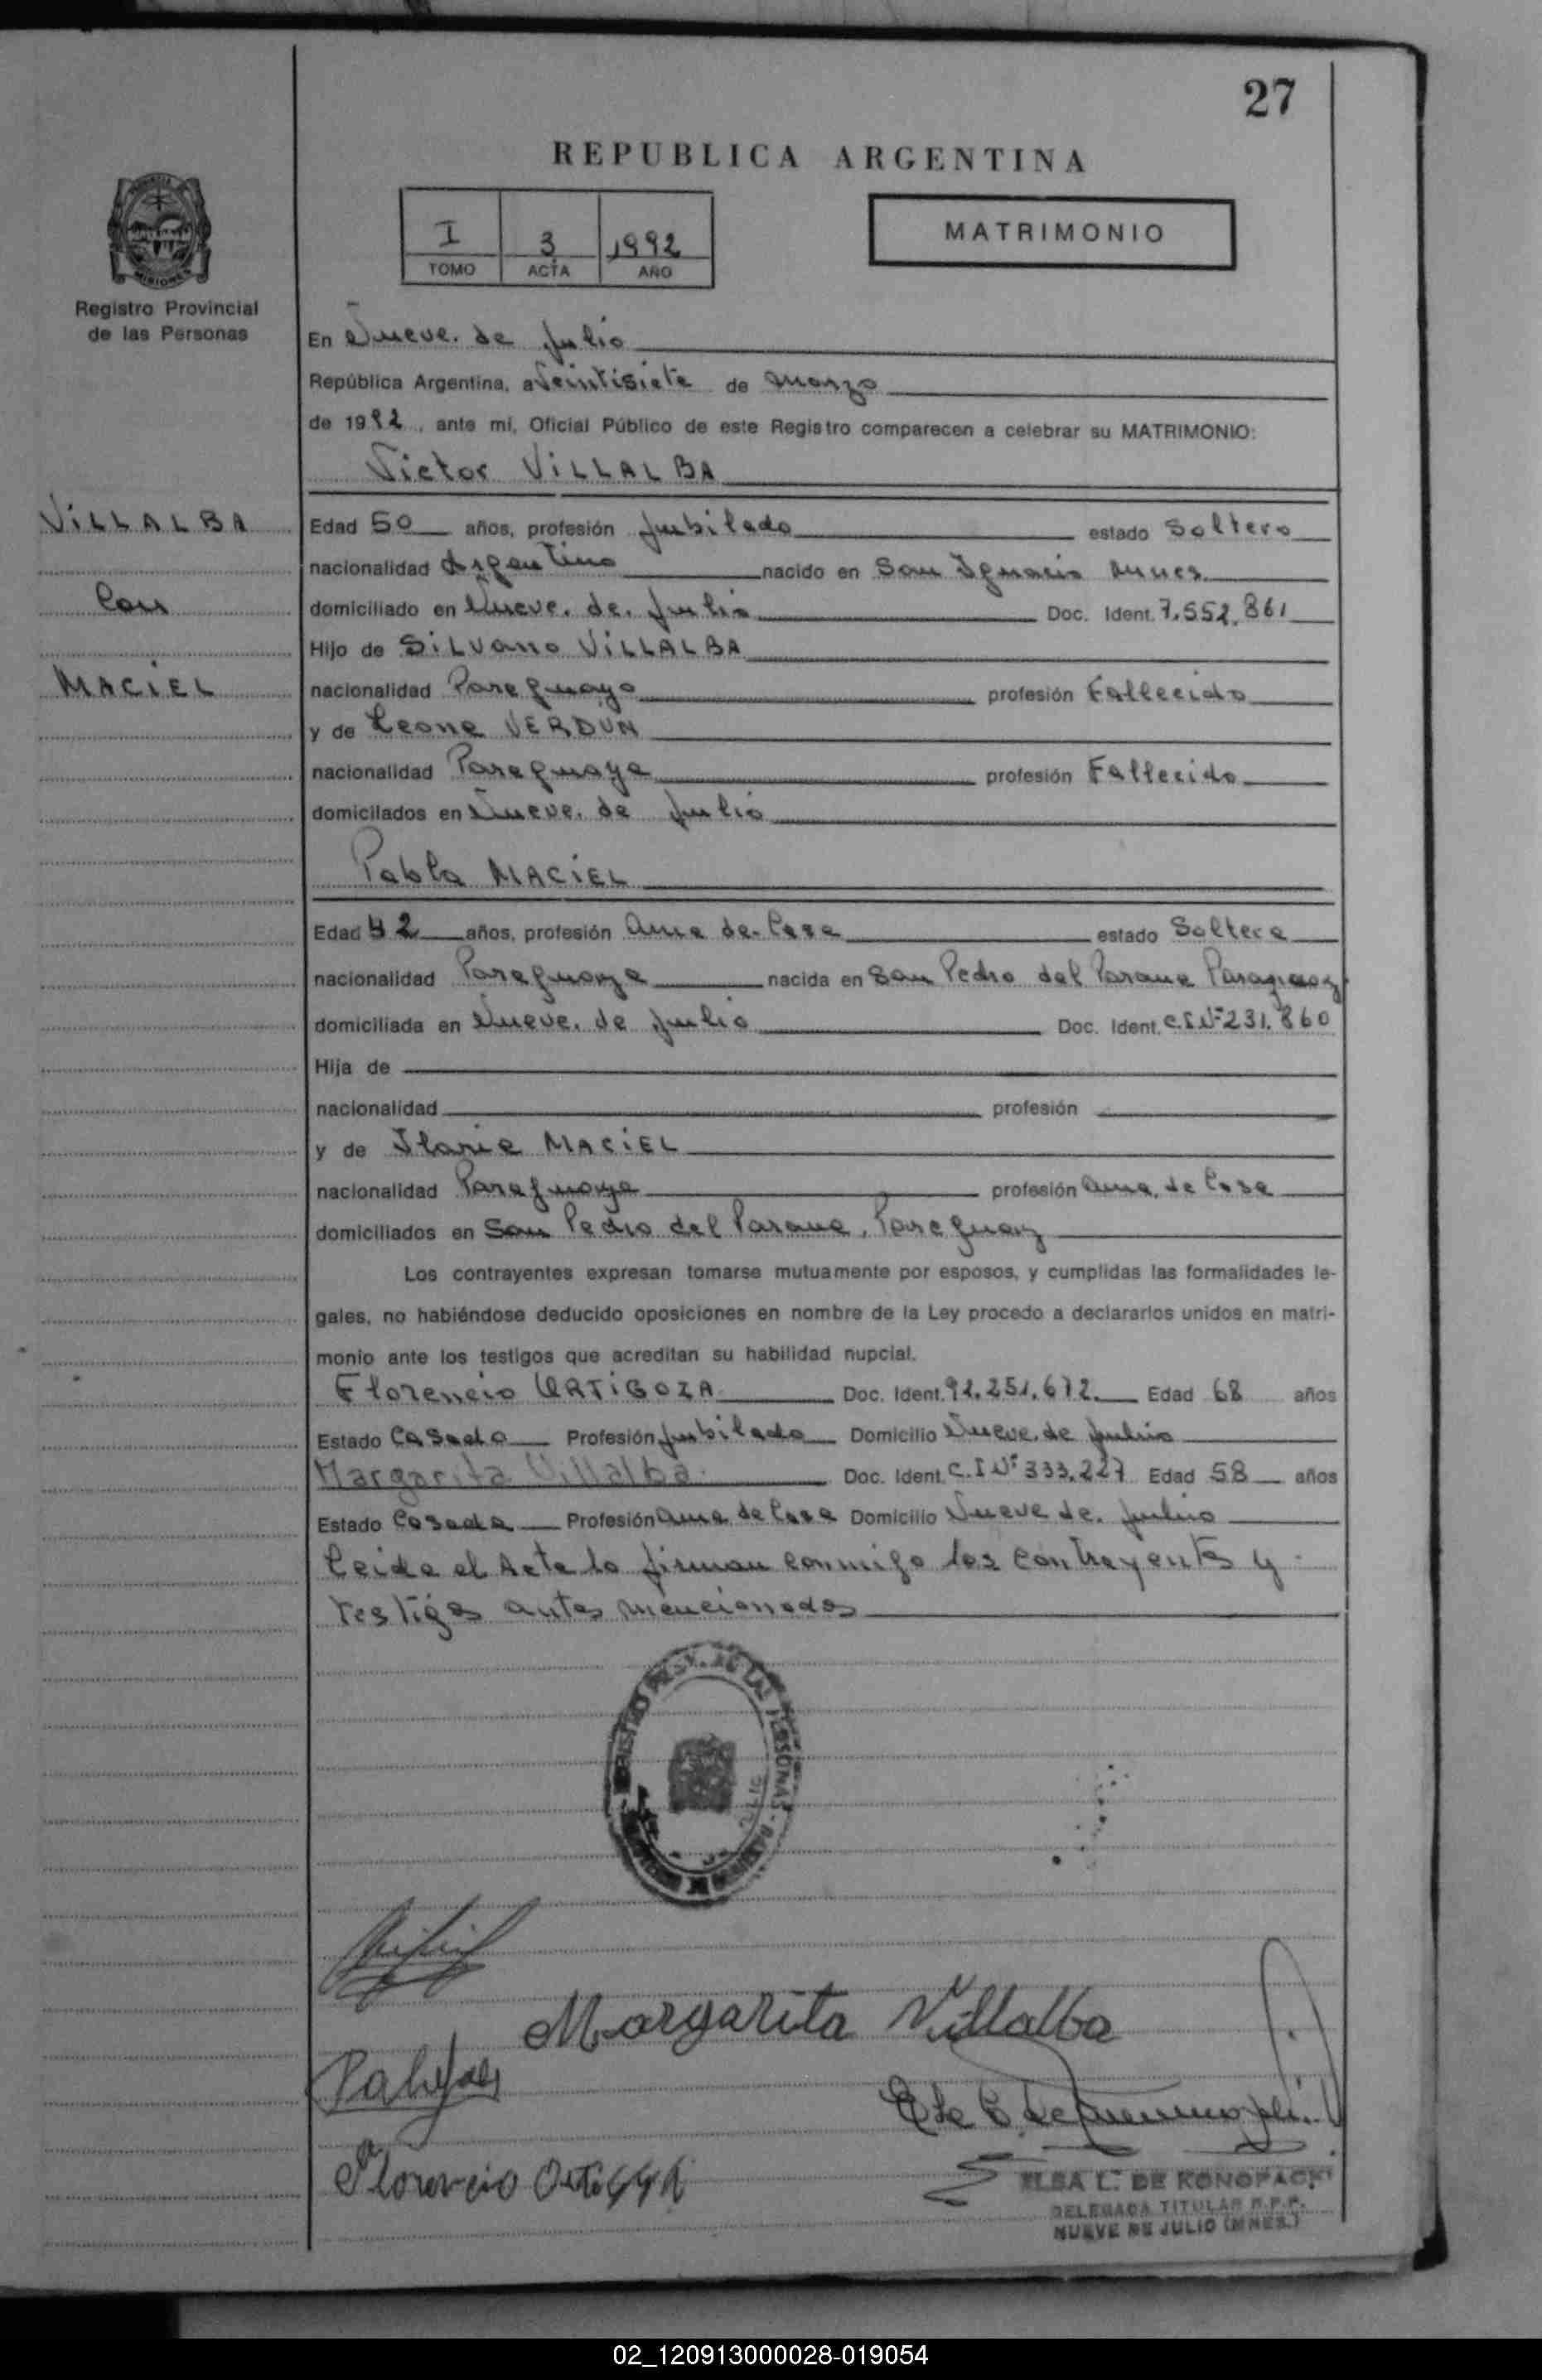 27
REPUBLICA ARGENTINA
I 3 1992
TOMO ACTA AÑO
MATRIMONIO
MISIONES
Registro Provincial
de las Personas
En Nueve. de Julio
República Argentina, a Veintisiete de Marzo
de 1992, ante mí, Oficial Público de este Registro comparecen a celebrar su MATRIMONIO:
Victor VILLALBA
VILLALBA
Con
MACIEL
Edad 50 años, profesión Jubilado estado Soltero
nacionalidad Argentino nacido en San Ignacio Mnes.
domiciliado en Nueve. de. Julio Doc. Ident. 7.552.861
Hijo de SILVano VILLALBA
nacionalidad Paraguayo profesión Fallecido
y de Leona VERDUN
nacionalidad Paraguaya profesión Fallecida
domicilados en Nueve. de Julio
Pabla MACIEL
Edad 42 años, profesión Ama de. Casa estado Soltera
nacionalidad Paraguaya nacida en San Pedro del Parana Paraguay
domiciliada en Nueve. de Julio Doc. Ident. C.I.Nº 231.860
Hija de
nacionalidad profesión
y de Ilaria MACIEL
nacionalidad Paraguaya profesión ama. de Casa
domiciliados en San Pedro del Parana, Paraguay
Los contrayentes expresan tomarse mutuamente por esposos, y cumplidas las formalidades le-
gales, no habiéndose deducido oposiciones en nombre de la Ley procedo a declararlos unidos en matri-
monio ante los testigos que acreditan su habilidad nupcial.
Florencio ORTIGOZA Doc. Ident. 92.251.672. Edad 68 años
Estado Casado Profesión Jubilado Domicilio Nueve. de Julio
Margarita Villalba Doc. Ident. C.I Nº 333.227 Edad 58 años
Estado Casada Profesión Ama de Casa Domicilio Nueve de. Julio
Leida el Acta lo firman conmigo los contrayentes y
testigos antes mencionados
Margarita Villalba
Florencio
ELSA L. DE KONOPACKI
DELEGADA TITULAR R.P.P.
NUEVE DE JULIO (MNES.)
02_120913000028-019054